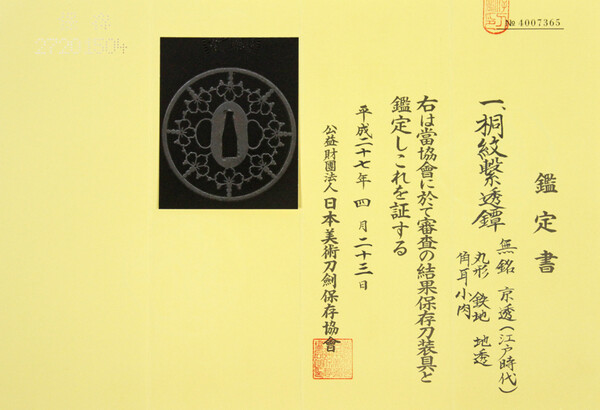 № 4007365
鑑定書
一、桐紋繋透鐔
無銘 京透(江戸時代)
丸形 鉄地 地透
角耳小肉
右は當協會に於て審査の結果保存刀装具と
鑑定しこれを証する
平成二十七年 四月二十三日
公益財團法人 日本美術刀劍保存協會